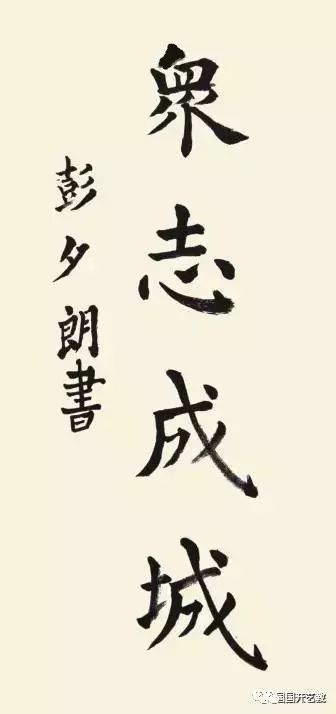 衆志成城
彭夕朗書
国国开艺教